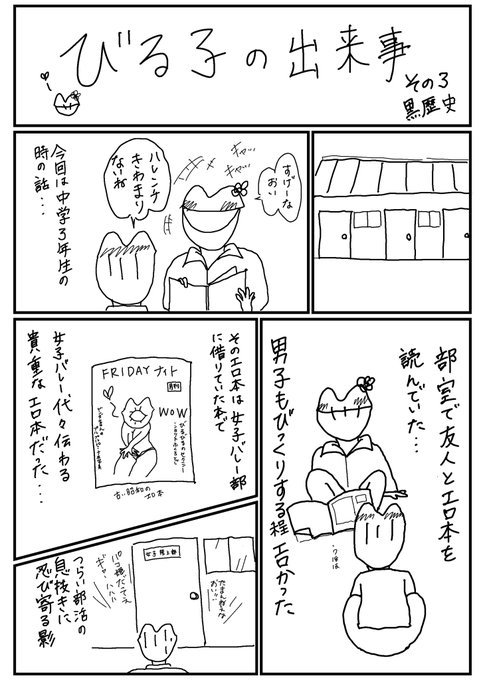 びる子の出来事
その3
黒歴史
すげーな
おい
キャハ…
キャハ…
ハレンチ
きわまり
ないね
今回は中学3年生の
時の話…
部室で友人とエロ本を
読んでいた…
男子もびっくりする程エロかった
うほほ
そのエロ本は女子バレー部
に借りていた本で
FRIDAYナイト
WOW
古い昭和の
エロ本
女子バレー代々伝わる
貴重なエロ本だった…
女子陸上部
たまんねぇな
おい…
ギャハハハハ
つらい部活の
息抜きに
忍び寄る影